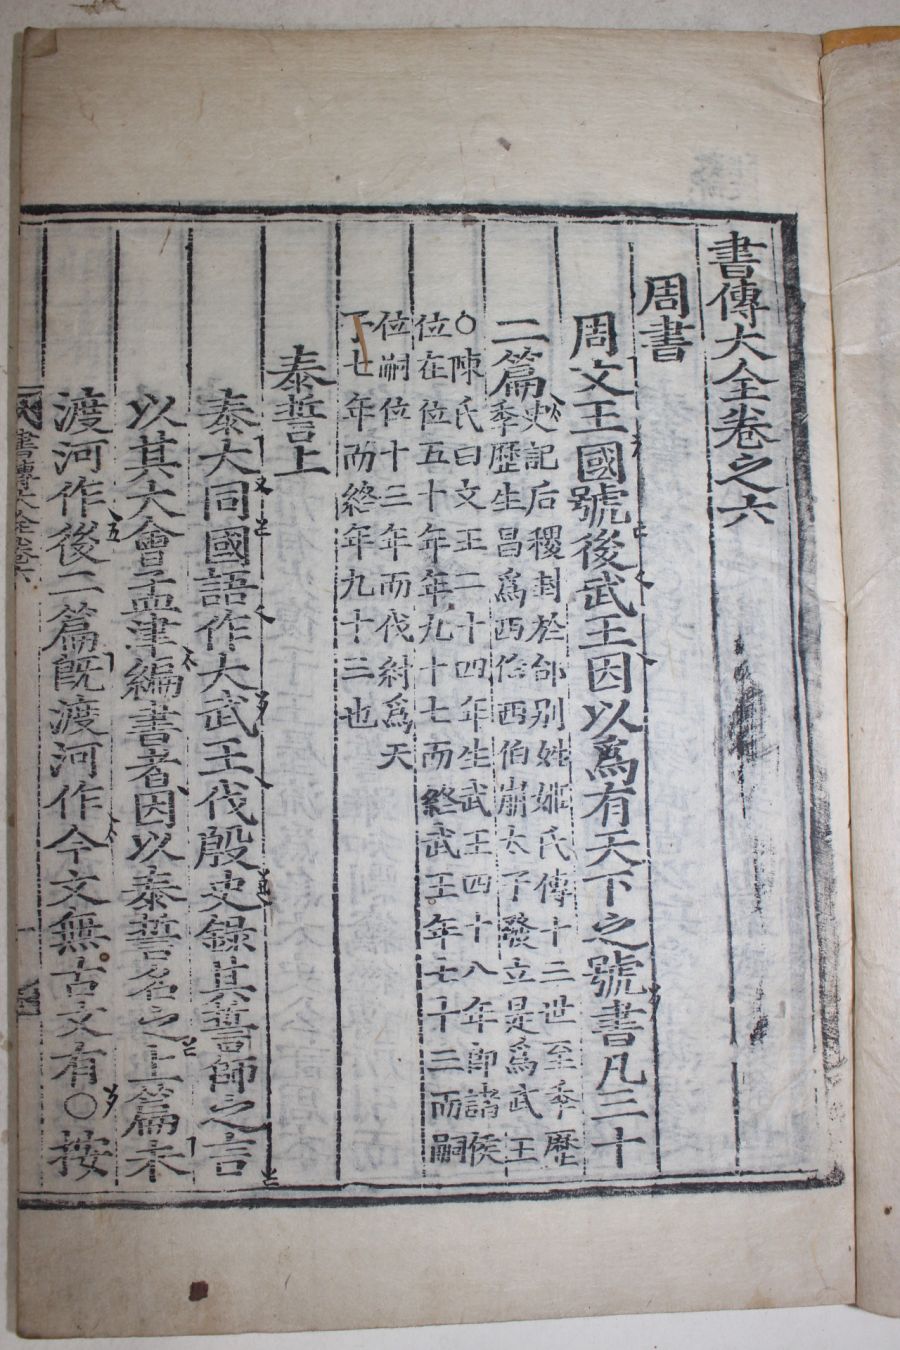 書傳大全卷之六
周書
周文王國號後武王因以爲有天下之號書凡三十
二篇
史記后稷封於邰别姓姬氏傳十三世至季歷
季歷生昌爲西伯西伯崩太子發立是爲武王
○陳氏曰文王二十四年生武王四十八年卽諸侯
位在位五十年年九十七而終武王年七十三而嗣
位嗣位十三年而伐紂爲天
子七年而終年九十三也
泰誓上
泰大同國語作大武王伐殷史錄其誓師之言
以其大會孟津編書者因以泰誓名之上篇未
渡河作後二篇旣渡河作今文無古文有○按
書傳大全卷六